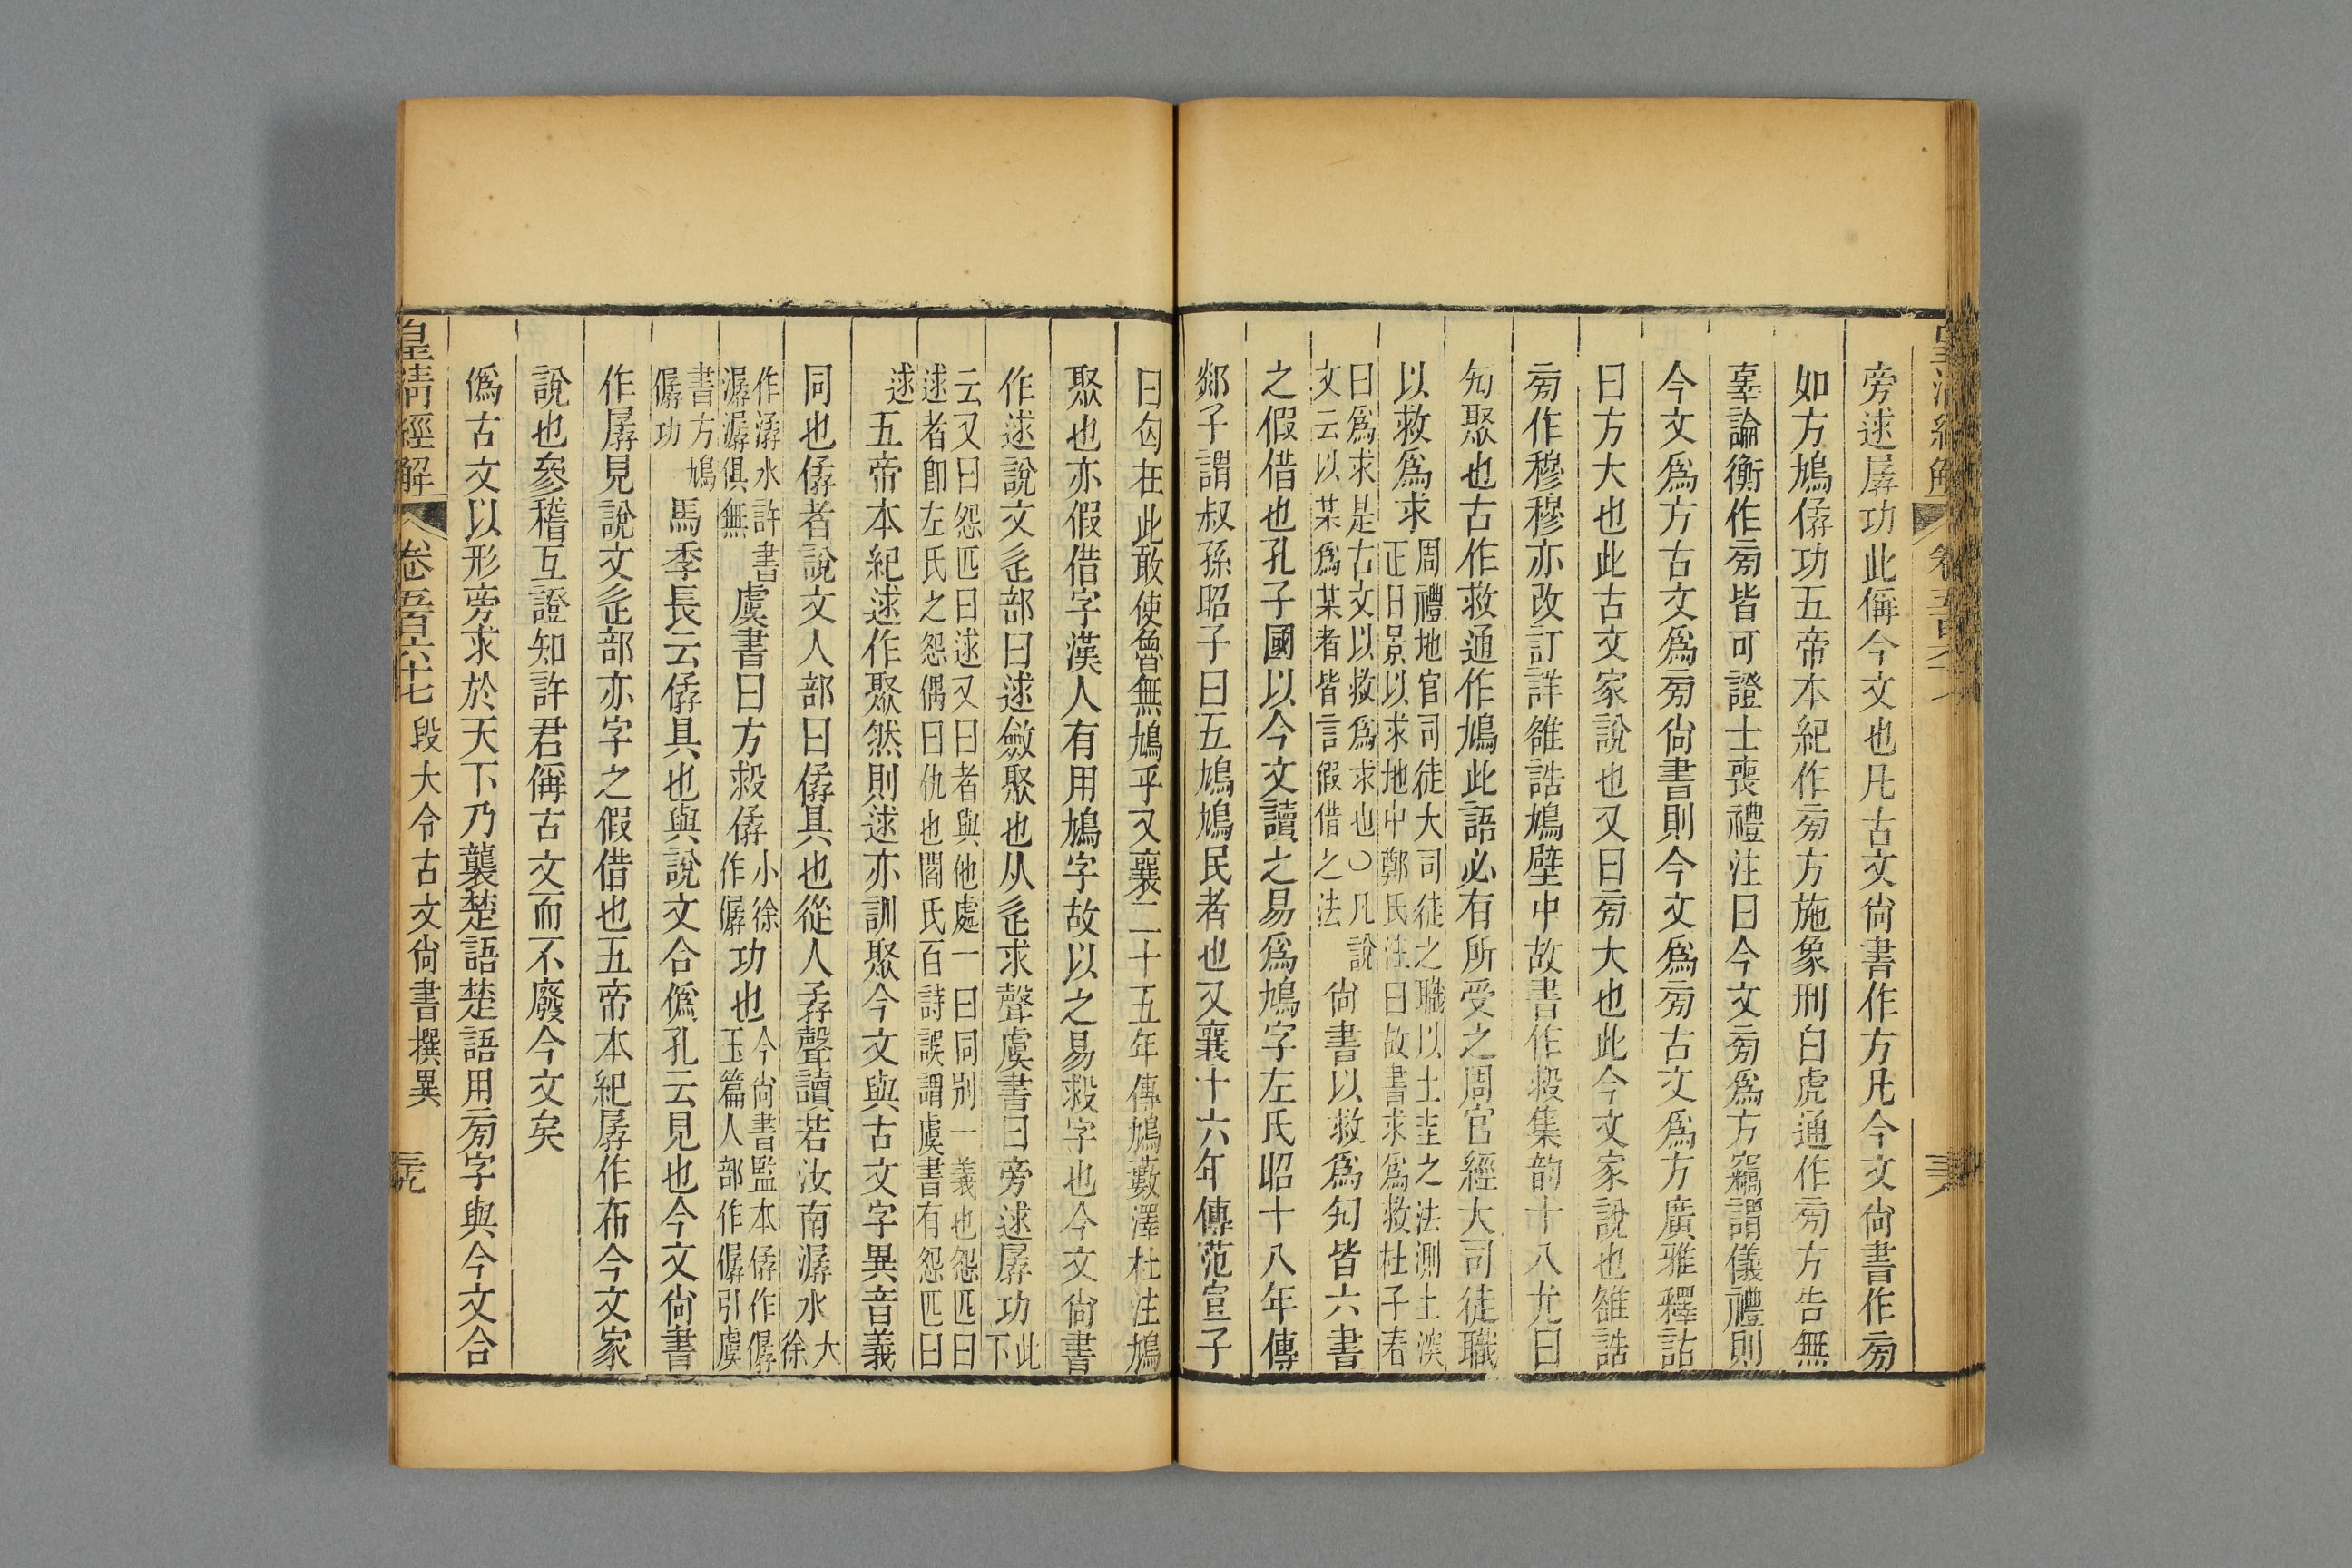 旁逑孱功此偁今文也凡古文尙書作方凡今文尙書作㫄
如方鳩僝功五帝本紀作㫄方施象刑白虎通作㫄方告無
辜論衡作㫄皆可證士喪禮注曰今文㫄爲方竊謂儀禮則
今文爲方古文爲㫄尙書則今文爲㫄古文爲方廣雅釋詁
曰方大也此古文家說也又曰㫄大也此今文家說也雒誥
㫄作穆穆亦改訂詳雒誥鳩壁中故書作𣪘集韵十八尤曰
勼聚也古作救通作鳩此語必有所受之周官經大司徒職
以救爲求
周禮地官司徒大司徒之職以土圭之法測土深
正日景以求地中鄭氏注曰故書求爲救杜子春
曰爲求是古文以救爲求也○凡說
文云以某爲某者皆言假借之法
尙書以救爲勼皆六書
之假借也孔子國以今文讀之易爲鳩字左氏昭十八年傳
郯子謂叔孫昭子曰五鳩鳩民者也又襄十六年傳范宣子
曰匄在此敢使魯無鳩乎又襄二十五年傳鳩藪澤杜注鳩
聚也亦假借字漢人有用鳩字故以之易救字也今文尙書
作逑說文辵部曰逑斂聚也从辵求聲虞書曰旁逑孱功
此下
云又曰怨匹曰逑又曰者與他處一曰同别一義也怨匹曰
逑者卽左氏之怨偶曰仇也閻氏百詩誤謂虞書有怨匹曰
逑
五帝本紀逑作聚然則逑亦訓聚今文與古文字異音義
同也僝者說文人部曰僝具也從人孨聲讀若汝南潺水
大徐
作潺水許書
潺潺俱無
虞書曰方救僝
小徐
作僝
功也
今尙書監本僝作僝
玉篇人部作僝引虞
書方鳩
僝功
馬季長云僝具也與說文合僞孔云見也今文尙書
作孱見說文辵部亦字之假借也五帝本紀孱作布今文家
說也參稽互證知許君偁古文而不廢今文矣
僞古文以形旁求於天下乃襲楚語楚語用㫄字與今文合
皇淸經解
卷五百六十七
段大令古文尙書撰異